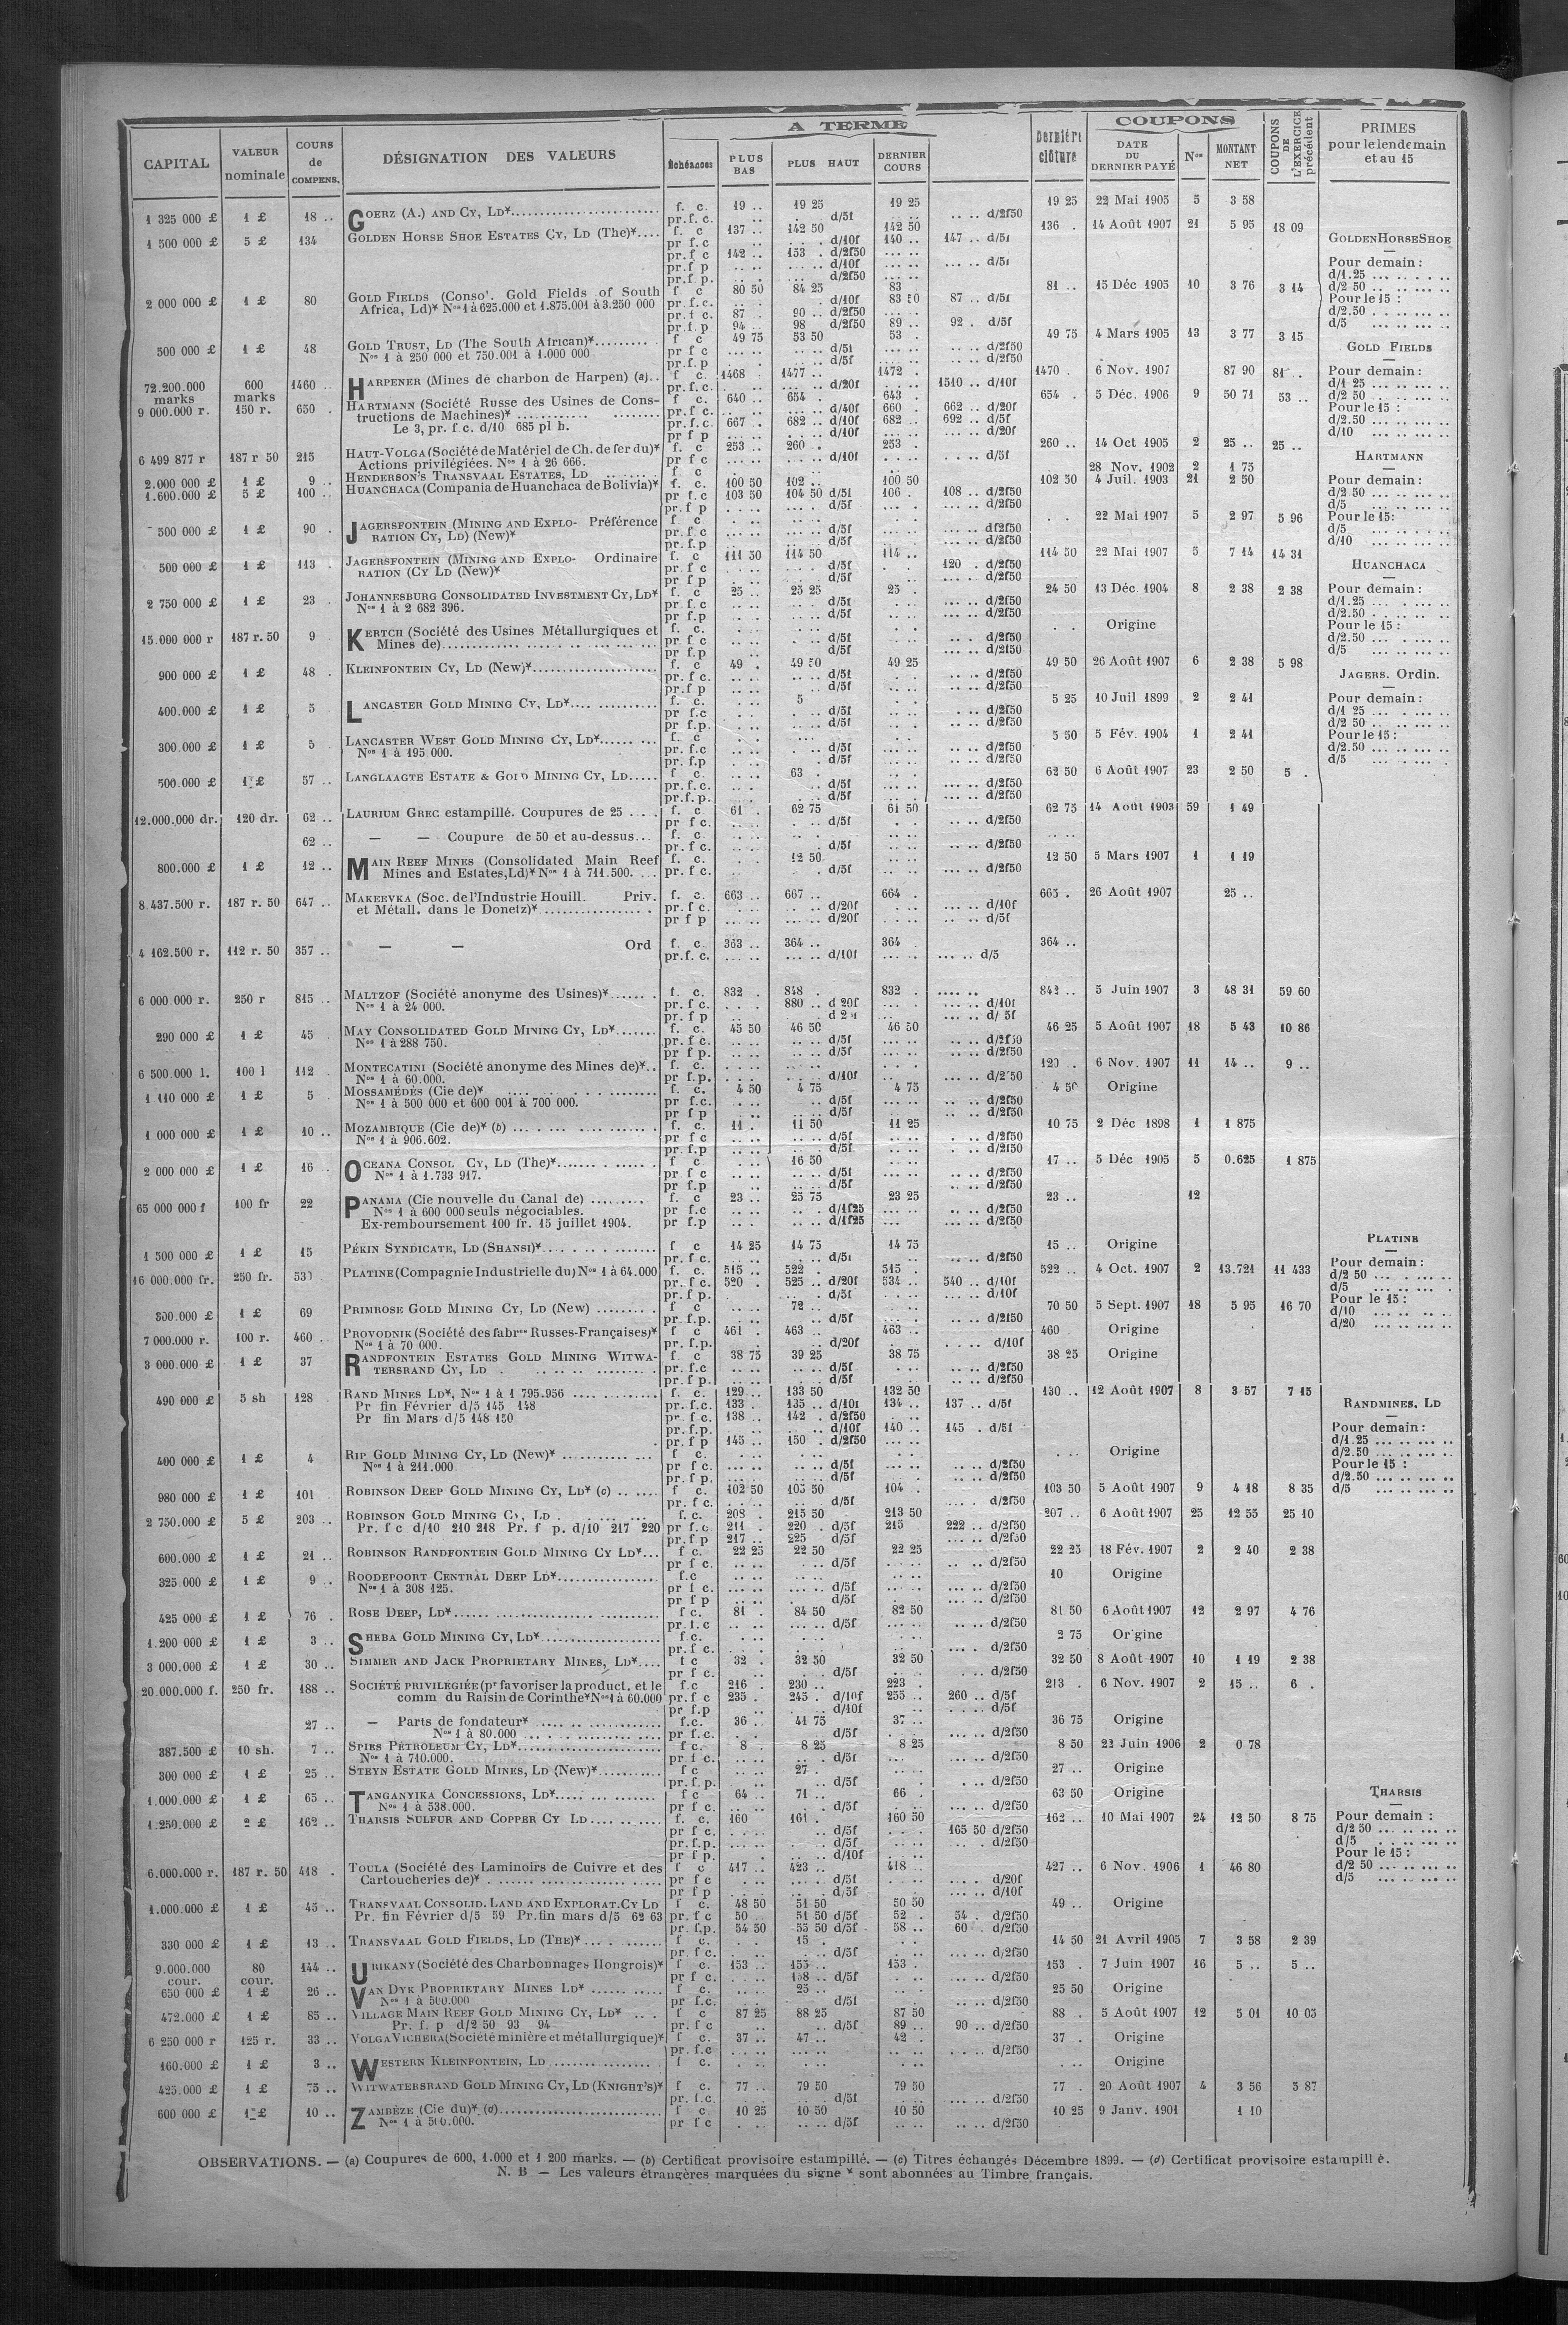 CAPITAL | VALEUR nominale | COURS de COMPENS. | DÉSIGNATION DES VALEURS | A TERME | Échéances | PLUS BAS | PLUS HAUT | DERNIER COURS | Dernière clôture | COUPONS | DATE DU DERNIER PAYÉ | Nos | MONTANT NET | COUPONS DE L'EXERCICE précédent | PRIMES pour le lendemain et au 15
1 325 000 £ | 1 £ | 18 .. | GOERZ (A.) AND CY, LD* | f. c. | 19 .. | 19 25 | 19 25 | 19 25 | 22 Mai 1905 | 5 | 3 58
pr. f. c. | d/5f | d/2f50
1 500 000 £ | 5 £ | 134 | GOLDEN HORSE SHOE ESTATES CY, LD (The)* | f. c | 137 .. | 142 50 | 142 50 | 136 . | 14 Août 1907 | 21 | 5 95 | 18 09
pr f. c | d/10f | 140 .. | 147 .. d/5f
pr. f c | 142 .. | 153 . d/2f50
pr. f p | d/10f | d/5f
pr. f p. | d/2f50
2 000 000 £ | 1 £ | 80 | GOLD FIELDS (Conso'. Gold Fields of South | f c | 80 50 | 84 25 | 83 | 81 .. | 15 Déc 1905 | 10 | 3 76 | 3 14
Africa, Ld)* Nos 1 à 625.000 et 1.875.001 à 3.250 000 | pr. f. c. | d/10f | 83 50 | 87 .. d/5f
pr. f c. | 87 . | 90 .. d/2f50
pr. f. p | 94 .. | 98 d/2f50 | 89 .. | 92 . d/5f
500 000 £ | 1 £ | 48 | GOLD TRUST, LD (The South African)* | f c | 49 75 | 53 50 | 53 . | 49 75 | 4 Mars 1905 | 13 | 3 77 | 3 15
Nos 1 à 250 000 et 750.001 à 1.000 000 | pr f c | d/5f | d/2f50
pr. f. p | d/5f | d/2f50
72.200.000 marks | 600 marks | 1460 .. | HARPENER (Mines de charbon de Harpen) (a) | f c. | 1468 . | 1477 .. | 1472 . | 1470 . | 6 Nov. 1907 | 87 90 | 81 ..
pr. f. c. | d/20f | 1510 .. d/10f
9 000.000 r. | 150 r. | 650 . | HARTMANN (Société Russe des Usines de Cons- | f. c. | 640 .. | 654 . | 643 . | 654 . | 5 Déc. 1906 | 9 | 50 71 | 53 ..
tructions de Machines)* | pr. f c. | d/40f | 660 . | 662 .. d/20f
Le 3, pr. f c. d/10 685 pl b. | pr. f. c. | 667 . | 682 .. d/10f | 682 .. | 692 .. d/5f
pr f p | d/10f | d/20f
6 499 877 r | 187 r 50 | 215 | HAUT-VOLGA (Société de Matériel de Ch. de fer du)* | f. c | 253 .. | 260 . | 253 . | 260 .. | 14 Oct 1905 | 2 | 25 .. | 25 ..
Actions privilégiées. Nos 1 à 26 666. | pr f c | d/10f | d/5f
2.000 000 £ | 1 £ | 9 .. | HENDERSON'S TRANSVAAL ESTATES, LD | f c | 28 Nov. 1902 | 2 | 1 75
1.600.000 £ | 5 £ | 100 .. | HUANCHACA (Compania de Huanchaca de Bolivia)* | f. c. | 100 50 | 102 .. | 100 50 | 102 50 | 4 Juil. 1903 | 21 | 2 50
pr f. c | 103 50 | 104 50 d/5f | 106 . | 108 .. d/2f50
pr. f p | d/5f | d/2f50
500 000 £ | 1 £ | 90 . | JAGERSFONTEIN (MINING AND EXPLO- Préférence | f c | 22 Mai 1907 | 5 | 2 97 | 5 96
RATION CY, LD) (New)* | pr. f c | d/5f | d/2f50
pr. f. p | d/5f | d/2f50
500 000 £ | 1 £ | 113 . | JAGERSFONTEIN (MINING AND EXPLO- Ordinaire | f. c | 111 50 | 114 50 | 114 .. | 114 50 | 22 Mai 1907 | 5 | 7 14 | 14 31
RATION (CY LD (New)* | pr. f c | d/5f | 120 . d/2f50
pr f p | d/5f | d/2f50
2 750 000 £ | 1 £ | 23 . | JOHANNESBURG CONSOLIDATED INVESTMENT CY, LD* | f. c | 25 .. | 25 25 | 25 . | 24 50 | 13 Déc 1904 | 8 | 2 38 | 2 38
Nos 1 à 2 682 396. | pr. f. c | d/5f | d/2f50
pr f. p | d/5f | d/2f50
15.000 000 r | 187 r. 50 | 9 . | KERTCH (Société des Usines Métallurgiques et | f. c. | Origine
Mines de) | pr f c | d/5f | d/2f50
pr. f. p | d/5f | d/2f50
900 000 £ | 1 £ | 48 . | KLEINFONTEIN CY, LD (New)* | f. c | 49 . | 49 50 | 49 25 | 49 50 | 26 Août 1907 | 6 | 2 38 | 5 98
pr. f c. | d/5f | d/2f50
pr. f p | d/5f | d/2f50
400.000 £ | 1 £ | 5 | LANCASTER GOLD MINING CY, LD* | f. c. | 5 | 5 25 | 10 Juil 1899 | 2 | 2 41
pr f.c | d/5f | d/2f50
pr f.p. | d/5f | d/2f50
300.000 £ | 1 £ | 5 | LANCASTER WEST GOLD MINING CY, LD* | f. c | 5 50 | 5 Fév. 1904 | 1 | 2 41
Nos 1 à 195 000. | pr. f. c | d/5f | d/2f50
pr. f. p | d/5f | d/2f50
500.000 £ | 1 £ | 57 .. | LANGLAAGTE ESTATE & GOLD MINING CY, LD | f c. | 63 . | 62 50 | 6 Août 1907 | 23 | 2 50 | 5 .
pr. f. c. | d/5f | d/2f50
pr. f. p. | d/5f | d/2f50
12.000.000 dr. | 120 dr. | 62 .. | LAURIUM GREC estampillé. Coupures de 25 | f. c | 61 . | 62 75 | 61 50 | 62 75 | 14 Août 1903 | 59 | 1 49
pr f c. | d/5f | d/2f50
62 .. | — — Coupure de 50 et au-dessus | f. c
pr. f c. | d/5f | d/2f50
800.000 £ | 1 £ | 12 .. | MAIN REEF MINES (Consolidated Main Reef | f. c. | 12 50 | 12 50 | 5 Mars 1907 | 1 | 1 19
Mines and Estates, Ld)* Nos 1 à 711.500. | pr. f c. | d/5f | d/2f50
8.437.500 r. | 187 r. 50 | 647 .. | MAKEEVKA (Soc. de l'Industrie Houill. Priv. | f. c. | 663 .. | 667 .. | 664 . | 665 . | 26 Août 1907 | 25 ..
et Métall. dans le Donetz)* | pr. f c. | d/20f | d/10f
pr f p | d/20f | d/5f
4 162.500 r. | 112 r. 50 | 357 .. | — — Ord | f. c. | 363 .. | 364 .. | 364 | 364 ..
pr. f. c. | d/10f | d/5
6 000.000 r. | 250 r | 815 .. | MALTZOF (Société anonyme des Usines)* | f. c. | 832 . | 848 . | 832 . | 842 .. | 5 Juin 1907 | 3 | 48 31 | 59 60
Nos 1 à 24 000. | pr. f c. | 880 .. d 20f | d/10f
pr. f p | d/ 5f
290 000 £ | 1 £ | 45 | MAY CONSOLIDATED GOLD MINING CY, LD* | f. c. | 45 50 | 46 50 | 46 50 | 46 25 | 5 Août 1907 | 18 | 5 43 | 10 86
Nos 1 à 288 750. | pr. f c. | d/5f | d/2f50
pr f p. | d/5f | d/2f50
6 500.000 l. | 100 l | 112 | MONTECATINI (Société anonyme des Mines de)* | f. c. | 120 .. | 6 Nov. 1907 | 11 | 14 .. | 9 ..
Nos 1 à 60.000. | pr f.p. | d/10f | d/2 50
1 110 000 £ | 1 £ | 5 | MOSSAMÉDÈS (Cie de)* | f. c. | 4 50 | 4 75 | 4 75 | 4 50 | Origine
Nos 1 à 500 000 et 600 001 à 700 000. | pr f.c. | d/5f | d/2f50
pr f p | d/5f | d/2f50
1 000 000 £ | 1 £ | 10 .. | MOZAMBIQUE (Cie de)* (b) | f. c. | 11 . | 11 50 | 11 25 | 10 75 | 2 Déc 1898 | 1 | 1 875
Nos 1 à 906.602. | pr f c | d/5f | d/2f50
pr. f.p | d/5f | d/2f50
2 000 000 £ | 1 £ | 16 .. | OCEANA CONSOL CY, LD (The)* | f c | 16 50 | 17 .. | 5 Déc 1905 | 5 | 0.625 | 1 875
Nos 1 à 1.733 917. | pr f c | d/5f | d/2f50
pr f.p | d/5f | d/2f50
65 000 000 f | 100 fr | 22 | PANAMA (Cie nouvelle du Canal de) | f. c | 23 .. | 23 75 | 23 25 | 23 .. | 12
Nos 1 à 600 000 seuls négociables. | pr f.c | d/1f25 | d/2f50
Ex-remboursement 100 fr. 15 juillet 1904. | pr f.p | d/1f25 | d/2f50
1 500 000 £ | 1 £ | 15 | PÉKIN SYNDICATE, LD (SHANSI)* | f c | 14 25 | 14 75 | 14 75 | 15 .. | Origine
pr. f c. | d/5f | d/2f50
16 000.000 fr. | 250 fr. | 530 | PLATINE (Compagnie Industrielle du) Nos 1 à 64.000 | f. c. | 515 .. | 522 . | 515 . | 522 .. | 4 Oct. 1907 | 2 | 13.721 | 11 433
pr. f c. | 520 . | 525 .. d/20f | 534 .. | 540 .. d/10f
pr. f p. | d/5f | d/10f
300.000 £ | 1 £ | 69 | PRIMROSE GOLD MINING CY, LD (New) | f c | 72 .. | 70 50 | 5 Sept. 1907 | 18 | 5 95 | 16 70
pr. f. p. | d/5f | d/2f50
7 000.000 r. | 100 r. | 460 . | PROVODNIK (Société des fabres Russes-Françaises)* | f c | 461 . | 463 .. | 463 .. | 460 | Origine
Nos 1 à 70 000. | pr. f. p. | d/20f | d/10f
3 000.000 £ | 1 £ | 37 | RANDFONTEIN ESTATES GOLD MINING WITWA- | f. c | 38 75 | 39 25 | 38 75 | 38 25 | Origine
TERSRAND CY, LD | pr. f.c | d/5f | d/2f50
pr. f p. | d/5f | d/2f50
490 000 £ | 5 sh | 128 | RAND MINES LD*, Nos 1 à 1 795.956 | f. c. | 129 .. | 133 50 | 132 50 | 130 .. | 12 Août 1907 | 8 | 3 57 | 7 15
Pr fin Février d/5 145 148 | pr. f.c. | 133 . | 135 .. d/10f | 134 .. | 137 .. d/5f
Pr fin Mars d/5 148 150 | pr. f c. | 138 .. | 142 . d/2f50
pr. f.p. | d/10f | 140 .. | 145 . d/5f
pr. f p | 145 .. | 150 . d/2f50
400 000 £ | 1 £ | 4 | RIP GOLD MINING CY, LD (New)* | f c | Origine
Nos 1 à 211.000 | pr f c. | d/5f | d/2f50
pr. f p. | d/5f | d/2f50
980 000 £ | 1 £ | 101 | ROBINSON DEEP GOLD MINING CY, LD* (c) | f c. | 102 50 | 105 50 | 104 . | 103 50 | 5 Août 1907 | 9 | 4 18 | 8 35
pr. f c. | d/5f | d/2f50
2 750.000 £ | 5 £ | 203 .. | ROBINSON GOLD MINING CY, LD | f. c. | 208 . | 215 50 | 213 50 | 207 .. | 6 Août 1907 | 25 | 12 55 | 25 10
Pr. f c d/10 210 218 Pr. f p. d/10 217 220 | pr f. c | 211 . | 220 . d/5f | 215 | 222 .. d/2f50
pr. f p | 217 .. | 225 d/5f | d/2f50
600.000 £ | 1 £ | 21 .. | ROBINSON RANDFONTEIN GOLD MINING CY LD* | f c. | 22 25 | 22 50 | 22 25 | 22 25 | 18 Fév. 1907 | 2 | 2 40 | 2 38
pr f c. | d/5f | d/2f50
325.000 £ | 1 £ | 9 .. | ROODEPOORT CENTRAL DEEP LD* | f.c | 10 | Origine
Nos 1 à 308 125. | pr f c. | d/5f | d/2f50
pr f p | d/5f | d/2f50
425 000 £ | 1 £ | 76 . | ROSE DEEP, LD* | f c. | 81 . | 84 50 | 82 50 | 81 50 | 6 Août 1907 | 12 | 2 97 | 4 76
pr. f. c | d/5f | d/2f50
1.200 000 £ | 1 £ | 3 .. | SHEBA GOLD MINING CY, LD* | f.c. | 2 75 | Origine
pr. f c. | d/2f50
3 000.000 £ | 1 £ | 30 .. | SIMMER AND JACK PROPRIETARY MINES, LD* | f c | 32 . | 32 50 | 32 50 | 32 50 | 8 Août 1907 | 10 | 1 19 | 2 38
pr f c. | d/5f | d/2f50
20.000.000 f. | 250 fr. | 188 .. | SOCIÉTÉ PRIVILEGIÉE (pr favoriser la product. et le | f.c | 216 . | 230 .. | 223 . | 213 . | 6 Nov. 1907 | 2 | 15 .. | 6 .
comm du Raisin de Corinthe* Nos 1 à 60.000 | pr. f c | 235 . | 245 . d/10f | 255 .. | 260 .. d/5f
pr f.p | d/10f | d/5f
27 .. | — Parts de fondateur* | f.c. | 36 .. | 41 75 | 37 .. | 36 75 | Origine
Nos 1 à 80.000 | pr f c. | d/5f | d/2f50
387.500 £ | 10 sh. | 7 .. | SPIES PETROLEUM CY, LD* | f c. | 8 . | 8 25 | 8 25 | 8 50 | 22 Juin 1906 | 2 | 0 78
Nos 1 à 710.000. | pr. f c. | d/5f | d/2f50
300 000 £ | 1 £ | 25 .. | STEYN ESTATE GOLD MINES, LD (New)* | f c | 27 . | 27 .. | Origine
pr. f. p. | d/5f | d/2f50
1.000.000 £ | 1 £ | 65 .. | TANGANYIKA CONCESSIONS, LD* | f c | 64 .. | 71 .. | 66 . | 63 50 | Origine
Nos 1 à 538.000. | pr f c. | d/5f | d/2f50
1.250.000 £ | 2 £ | 162 .. | THARSIS SULFUR AND COPPER CY LD | f. c. | 160 | 161 . | 160 50 | 162 .. | 10 Mai 1907 | 24 | 12 50 | 8 75
pr f c. | d/5f | 165 50 d/2f50
pr. f. p. | d/5f | d/2f50
pr f p. | d/10f
6.000.000 r. | 187 r. 50 | 418 . | TOULA (Société des Laminoirs de Cuivre et des | f c | 417 . | 423 .. | 418 .. | 427 .. | 6 Nov. 1906 | 1 | 46 80
Cartoucheries de)* | pr f c | d/5f | d/20f
pr f p | d/5f | d/10f
1.000.000 £ | 1 £ | 45 .. | TRANSVAAL CONSOLID. LAND AND EXPLORAT. CY LD | f c. | 48 50 | 51 50 | 50 50 | 49 .. | Origine
Pr. fin Février d/5 59 Pr. fin mars d/5 62 63 | pr. f c | 50 .. | 51 50 d/5f | 52 . | 54 . d/2f50
pr. f.p. | 54 50 | 55 50 d/5f | 58 .. | 60 . d/2f50
330 000 £ | 1 £ | 13 .. | TRANSVAAL GOLD FIELDS, LD (THE)* | f c. | 15 . | 14 50 | 21 Avril 1905 | 7 | 3 58 | 2 39
pr. f c. | d/5f | d/2f50
9.000.000 cour. | 80 cour. | 144 .. | URIKANY (Société des Charbonnages Hongrois)* | f c. | 153 .. | 155 .. | 153 . | 153 . | 7 Juin 1907 | 16 | 5 .. | 5 ..
pr f c. | 158 .. d/5f | d/2f50
650 000 £ | 1 £ | 26 .. | VAN DYK PROPRIETARY MINES LD* | f c. | 25 .. | 25 50 | Origine
Nos 1 à 500.000 | pr f.c. | d/5f | d/2f50
472.000 £ | 1 £ | 85 .. | VILLAGE MAIN REEF GOLD MINING CY, LD* | f c | 87 25 | 88 25 | 87 50 | 88 . | 5 Août 1907 | 12 | 5 01 | 10 03
Pr. f. p d/2 50 93 94 | pr. f c | d/5f | 89 .. | 90 .. d/2f50
6 250 000 r | 125 r. | 33 .. | VOLGA VICHERA (Société minière et métallurgique)* | f c. | 37 .. | 47 .. | 42 . | 37 . | Origine
pr. f.c | d/2f50
160.000 £ | 1 £ | 3 .. | WESTERN KLEINFONTEIN, LD | f c. | Origine
425.000 £ | 1 £ | 75 .. | WITWATERSRAND GOLD MINING CY, LD (KNIGHT'S)* | f c. | 77 .. | 79 50 | 79 50 | 77 . | 20 Août 1907 | 4 | 3 56 | 5 87
pr. f.c. | d/5f | d/2f50
600 000 £ | 1 £ | 10 .. | ZAMBÈZE (Cie du)* (d) | f c. | 10 25 | 10 50 | 10 50 | 10 25 | 9 Janv. 1901 | 1 10
Nos 1 à 500.000. | pr f c | d/5f | d/2f50
GOLDEN HORSE SHOE
Pour demain :
d/1.25
d/2 50
Pour le 15 :
d/2.50
d/5
GOLD FIELDS
Pour demain :
d/1 25
d/2 50
Pour le 15 :
d/2.50
d/10
HARTMANN
Pour demain :
d/2 50
d/5
Pour le 15:
d/5
d/10
HUANCHACA
Pour demain :
d/1.25
d/2.50
Pour le 15 :
d/2.50
d/5
JAGERS. Ordin.
Pour demain :
d/1 25
d/2 50
Pour le 15 :
d/2.50
d/5
PLATINE
Pour demain :
d/2 50
d/5
Pour le 15 :
d/10
d/20
RANDMINES, LD
Pour demain :
d/1.25
d/2.50
Pour le 15 :
d/2.50
d/5
THARSIS
Pour demain :
d/2 50
d/5
Pour le 15 :
d/2 50
d/5
OBSERVATIONS. — (a) Coupures de 600, 1.000 et 1 200 marks. — (b) Certificat provisoire estampillé. — (c) Titres échangés Décembre 1899. — (d) Certificat provisoire estampillé.
N. B — Les valeurs étrangères marquées du signe * sont abonnées au Timbre français.